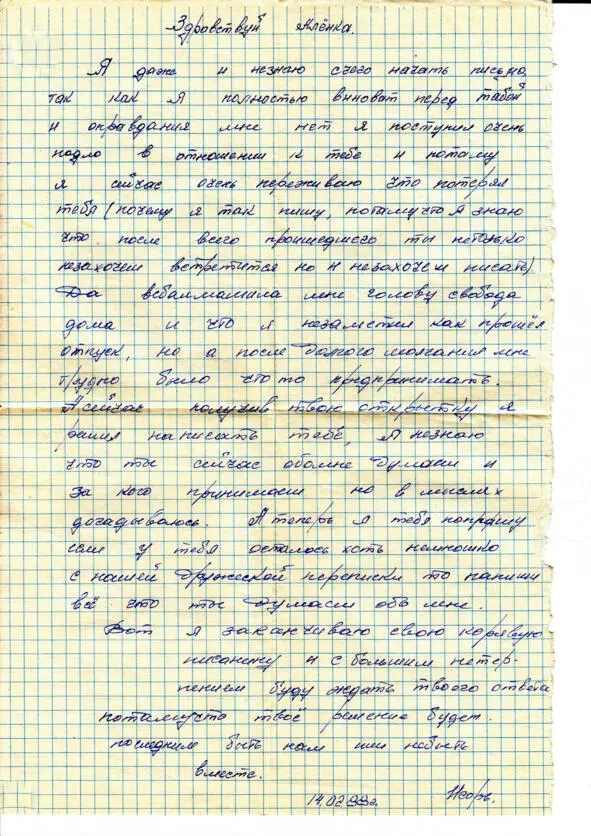 Здравствуй Алёнка.
Я даже и незнаю счего начать письмо
так как я полностью виноват перед табой
и оправдания мне нет я поступил очень
подло в отношении к тебе и потаму
я сийчас очень переживаю что потерял
тебя (почему я так пишу, потаму что я знаю
что после всего произшедшего ты нетолько
незахочеш встретится но и незахочеш писать).
Да взбаламошила мне голову свобода
дома и что я незаметил как прошёл
отпуск, но а после долгого молчания мне
трудно было что то предпринимать.
А сейчас получив твою открытку я
решил написать тебе, Я незнаю
что ты сейчас обомне думаеш и
за кого принимаеш но в мыслях
догадываюсь. А теперь я тебя попрашу
если у тебя осталось хоть немношко
с нашей дружеской переписки то напиши
всё что ты думаеш обо мне.
Вот я заканчиваю свою корявую
писанину и с большим нетер-
пением буду ждать твоего ответа
потамушта твоё решение будет
последним быть нам или небыть
вместе.
14.02.88г. Игорь.